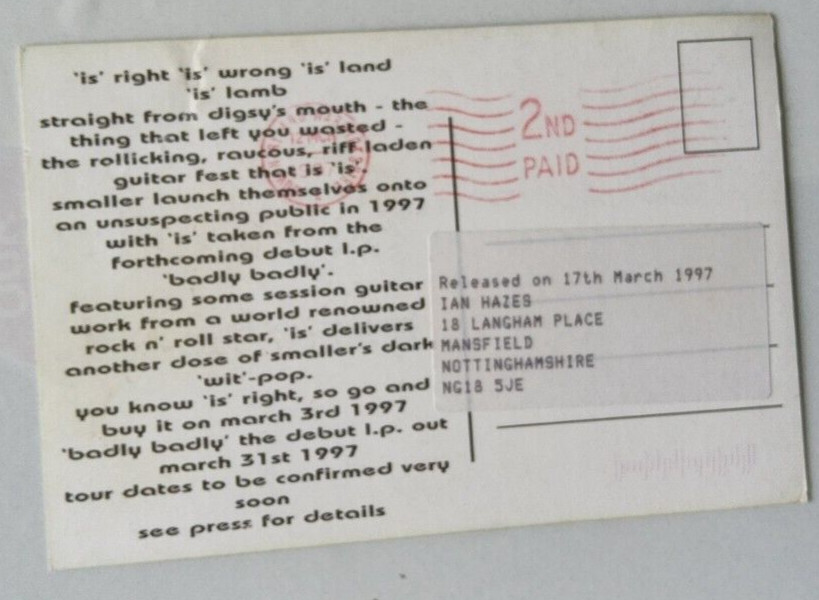 'is' right 'is' wrong 'is' land
'is' lamb
straight from digsy's mouth - the
thing that left you wasted -
the rollicking, raucous, riff laden
guitar fest that is 'is'.
smaller launch themselves onto
an unsuspecting public in 1997
with 'is' taken from the
forthcoming debut l.p.
'badly badly'.
featuring some session guitar
work from a world renowned
rock n' roll star, 'is' delivers
another dose of smaller's dark
'wit'-pop.
you know 'is' right, so go and
buy it on march 3rd 1997
'badly badly' the debut l.p. out
march 31st 1997
tour dates to be confirmed very
soon
see press for details
2ND
PAID
Released on 17th March 1997
IAN HAZES
18 LANGHAM PLACE
MANSFIELD
NOTTINGHAMSHIRE
NG18 5JE